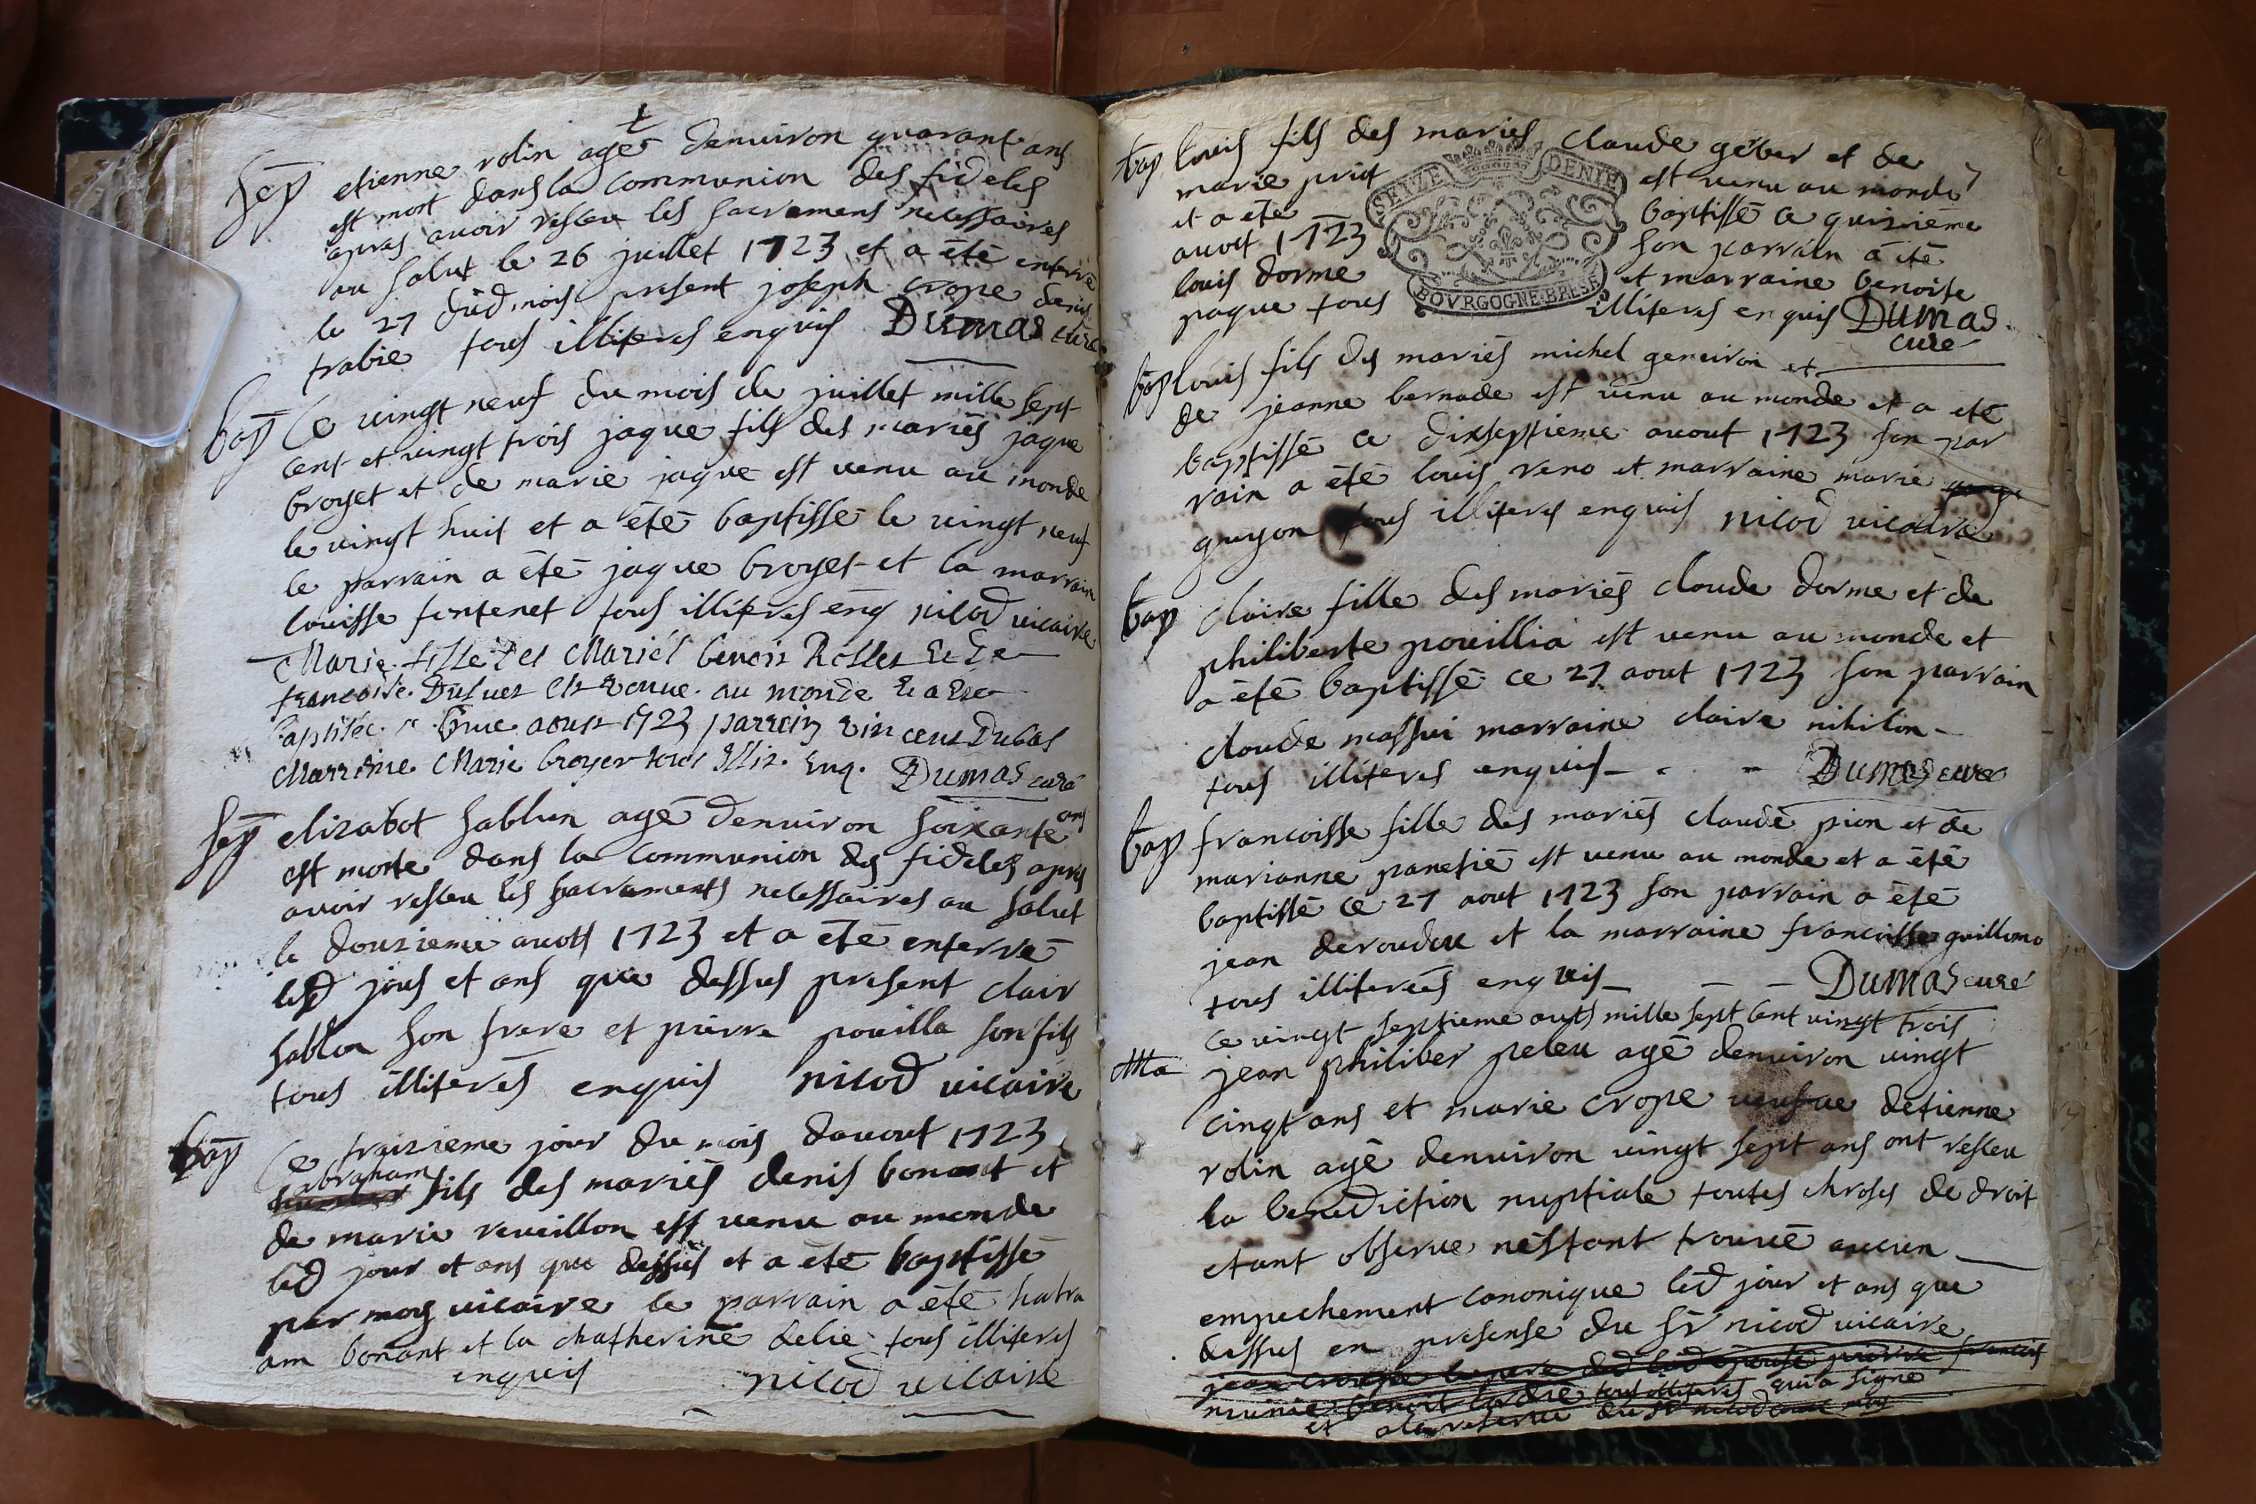 t
sep etienne rolin agé denuiron quarant ans
est mort dans la communion des fideles
apres auoir resseu les sacremens nessessaires
au salut le 26 juillet 1723 et a été enterré
le 27 dud mois present joseph crope denis
trabie tous illiterés enquis Dumas curé
bap Ce vingt neuf du mois de juillet mille sept
cent et vingt trois jaque fils des mariés jaque
broyet et de marie jaque est venu au monde
le vingt huit et a été baptissé le vingt neuf
le parrain a été jaque broyet et la marraine
louisse fontenet tous illiterés enq nicod vicaire
Marie fille des Mariés benoit Rollet Et De
francoise Dubuet Est venue au monde Et a Ete
baptisée ce aoust 1723 parrain vincent Dubas
Marraine Marie broyer tous Illit. Enq. Dumas curé
sep elizabot sablun agé denuiron soixante ans
est morte dans la communion des fideles apres
auoir resseu les sacraments nessessaires au salut
le douzieme auost 1723 et a été enterré
lesd jous et ans que dessus present clair
sablon son frere et pierre pouilla son fils
tous illiterés enquis nicod vicaire
bap Ce traizieme jour du mois dauout 1723
abraham
fils des mariés denis bonant et
de marie reueillon est venu au monde
led jour et ans que dessus et a été baptissé
par moy vicaire le parrain a été habra
am bonant et la chatherine delie tous illiterés
enquis nicod vicaire
bap louis fils des mariés claude géber et de
marie priot est venu au monde
et a été baptissé ce quinzieme
auost 1723 son parrain a été
louis dorme et marraine benoite
paque tous illiterés enquis Dumas
curé
SEIZE DENIE
BOVRGOGNE·BRESE
7
bap louis fils des mariés michel geneiron et
de jeanne bernade est venu au monde et a eté
baptissé ce dixseptieme auout 1723 son par
rain a été louis reno et marraine marie
guyon tous illiterés enquis nicod vicaire
bap claire fille des mariés cloude dorme et de
philiberte pouillia est venu au monde et
a été baptissé ce 27 aout 1723 son parrain
cloude massui marraine claire nihilon
tous illiterés enquis Dumas curé
bap francoisse fille des mariés claude pion et de
marianne panetié est venu au monde et a été
baptissé ce 27 aout 1723 son parrain a été
jean deroudou et la marraine francoisse guillimo
tous illiterés enquis Dumas curé
ce vingt septieme aout mille sept cent vingt trois
Ma jean philiber peleu agé denuiron vingt
cinqt ans et marie crope veufue detienne
rolin agé denuiron vingt sept ans ont resseu
la benediction nuptiale toutes chroses de droit
etant obserue néstant trouué aucun
empechement cononique led jour et ans que
dessus en presense du sr nicod vicaire
jean crope le pere dud
benoit tous illiterés qui a signé
et